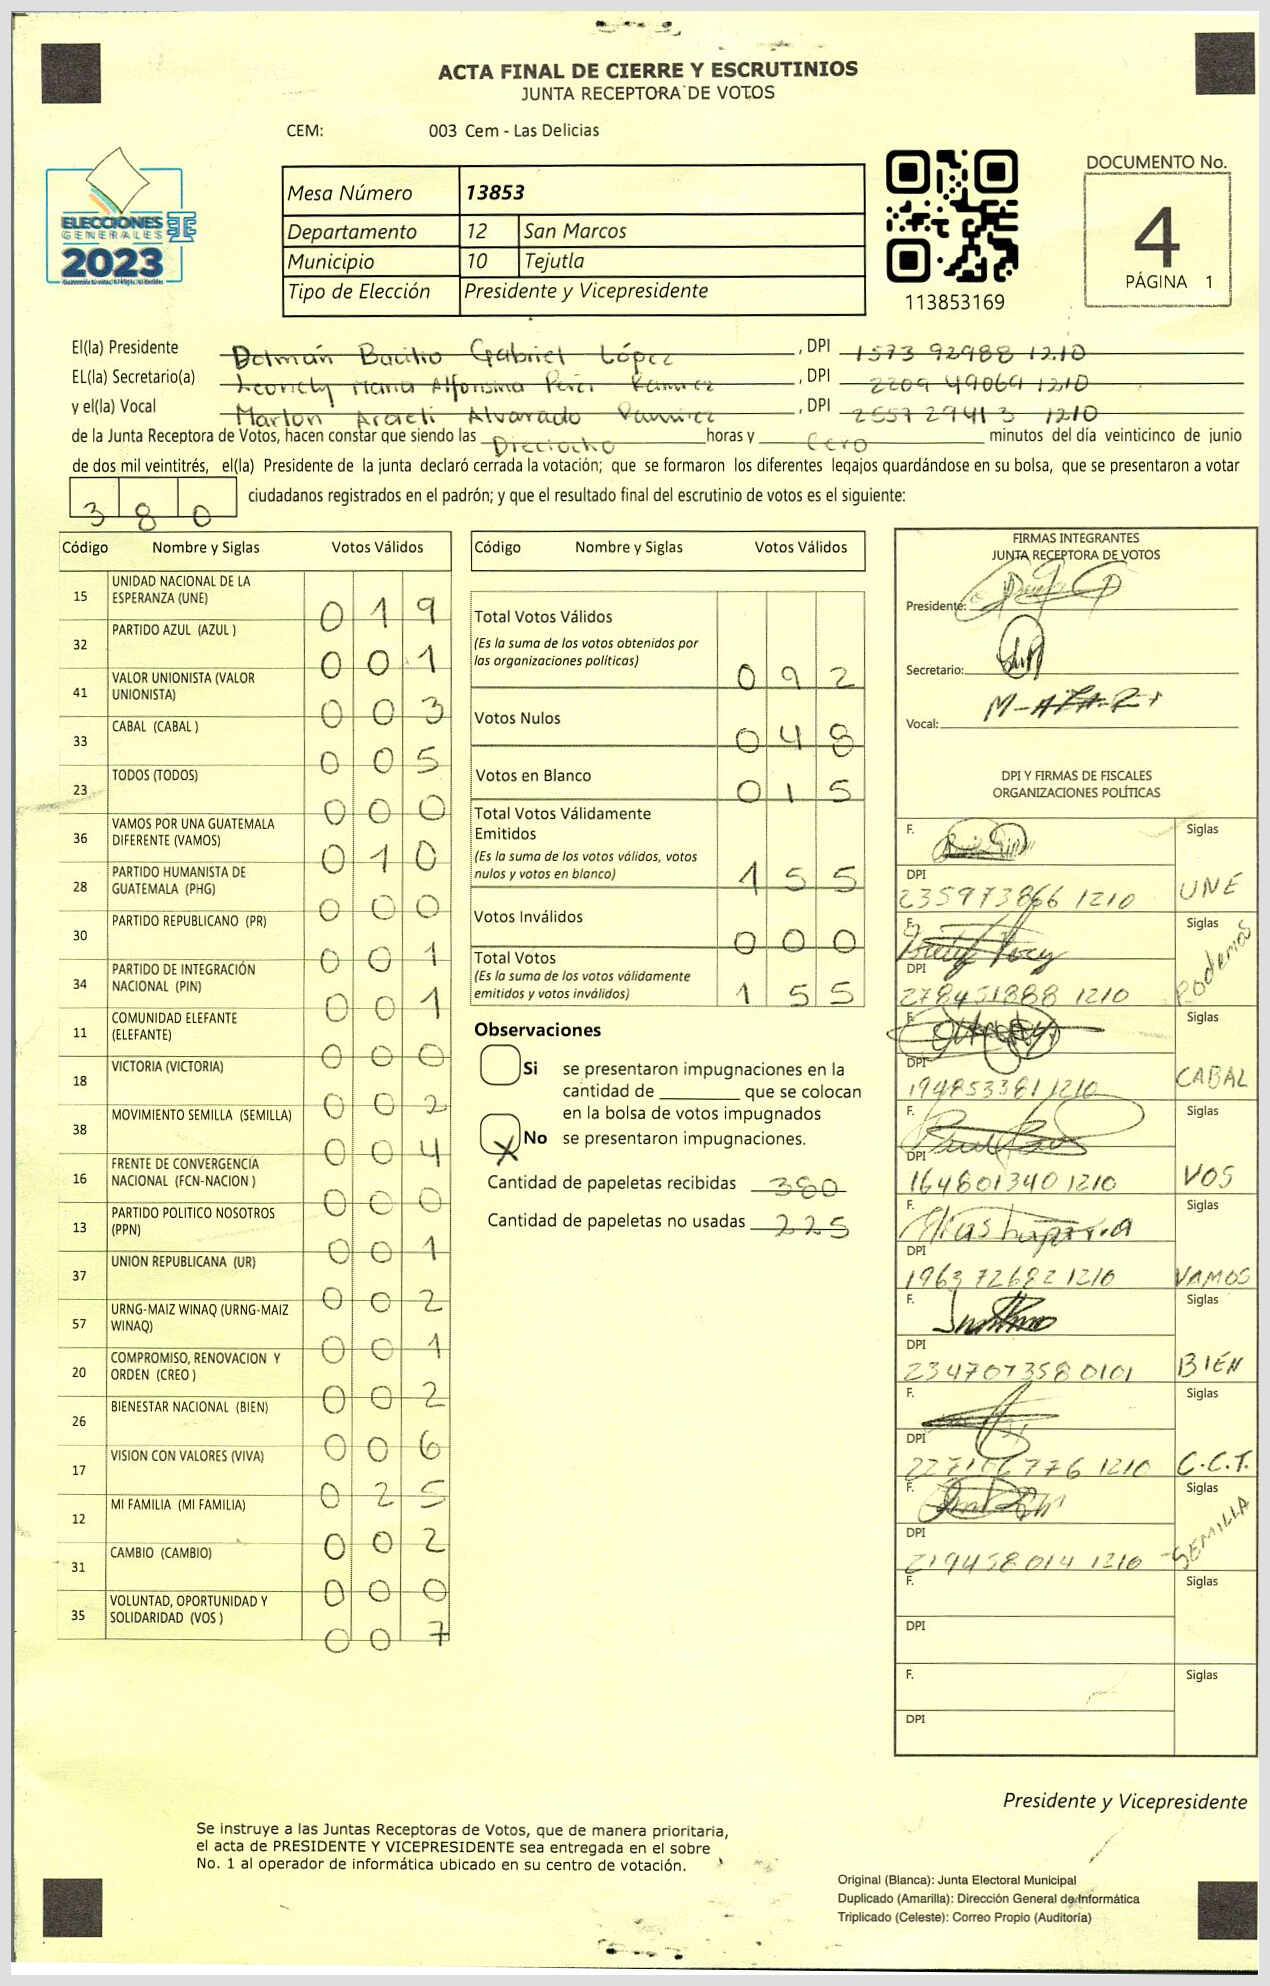 ACTA FINAL DE CIERRE Y ESCRUTINIOS
JUNTA RECEPTORA DE VOTOS
CEM: 003 Cem - Las Delicias
ELECCIONES
GENERALES
2023
Mesa Número 13853
Departamento 12 San Marcos
Municipio 10 Tejutla
Tipo de Elección Presidente y Vicepresidente
113853169
DOCUMENTO No.
4
PÁGINA 1
El(la) Presidente Gabriel López , DPI 1573 92988 1210
EL(la) Secretario(a) Alfonsina Ramirez , DPI 2209 49069 1210
y el(la) Vocal Alvarado Ramirez , DPI 2557 29413 1210
de la Junta Receptora de Votos, hacen constar que siendo las Dieciocho horas y Cero minutos del día veinticinco de junio
de dos mil veintitrés, el(la) Presidente de la junta declaró cerrada la votación; que se formaron los diferentes legajos guardándose en su bolsa, que se presentaron a votar
3 8 0 ciudadanos registrados en el padrón; y que el resultado final del escrutinio de votos es el siguiente:
Código Nombre y Siglas Votos Válidos
15 UNIDAD NACIONAL DE LA ESPERANZA (UNE) 0 1 9
32 PARTIDO AZUL (AZUL ) 0 0 1
41 VALOR UNIONISTA (VALOR UNIONISTA) 0 0 3
33 CABAL (CABAL ) 0 0 5
23 TODOS (TODOS) 0 0 0
36 VAMOS POR UNA GUATEMALA DIFERENTE (VAMOS) 0 1 0
28 PARTIDO HUMANISTA DE GUATEMALA (PHG) 0 0 0
30 PARTIDO REPUBLICANO (PR) 0 0 1
34 PARTIDO DE INTEGRACIÓN NACIONAL (PIN) 0 0 1
11 COMUNIDAD ELEFANTE (ELEFANTE) 0 0 0
18 VICTORIA (VICTORIA) 0 0 2
38 MOVIMIENTO SEMILLA (SEMILLA) 0 0 4
16 FRENTE DE CONVERGENCIA NACIONAL (FCN-NACION ) 0 0 0
13 PARTIDO POLITICO NOSOTROS (PPN) 0 0 1
37 UNION REPUBLICANA (UR) 0 0 2
57 URNG-MAIZ WINAQ (URNG-MAIZ WINAQ) 0 0 1
20 COMPROMISO, RENOVACION Y ORDEN (CREO ) 0 0 2
26 BIENESTAR NACIONAL (BIEN) 0 0 6
17 VISION CON VALORES (VIVA) 0 2 5
12 MI FAMILIA (MI FAMILIA) 0 0 2
31 CAMBIO (CAMBIO) 0 0 0
35 VOLUNTAD, OPORTUNIDAD Y SOLIDARIDAD (VOS ) 0 0 7
Código Nombre y Siglas Votos Válidos
Total Votos Válidos
(Es la suma de los votos obtenidos por
las organizaciones políticas) 0 9 2
Votos Nulos 0 4 8
Votos en Blanco 0 1 5
Total Votos Válidamente
Emitidos
(Es la suma de los votos válidos, votos
nulos y votos en blanco) 1 5 5
Votos Inválidos 0 0 0
Total Votos
(Es la suma de los votos válidamente
emitidos y votos inválidos) 1 5 5
Observaciones
Si se presentaron impugnaciones en la
cantidad de ________ que se colocan
en la bolsa de votos impugnados
X No se presentaron impugnaciones.
Cantidad de papeletas recibidas 380
Cantidad de papeletas no usadas 225
FIRMAS INTEGRANTES
JUNTA RECEPTORA DE VOTOS
Presidente:
Secretario:
Vocal:
DPI Y FIRMAS DE FISCALES
ORGANIZACIONES POLÍTICAS
F. Siglas
DPI
235973866 1210 UNE
F. Siglas
DPI
278451888 1210 Podemos
F. Siglas
DPI
194853381 1210 CABAL
F. Siglas
DPI
164801340 1210 VOS
F. Siglas
DPI
196372682 1210 VAMOS
F. Siglas
DPI
234707358 0101 BIEN
F. Siglas
DPI
1210 C.C.T.
F. Siglas
DPI
219458014 1210 SEMILLA
F. Siglas
DPI
F. Siglas
DPI
Presidente y Vicepresidente
Se instruye a las Juntas Receptoras de Votos, que de manera prioritaria,
el acta de PRESIDENTE Y VICEPRESIDENTE sea entregada en el sobre
No. 1 al operador de informática ubicado en su centro de votación.
Original (Blanca): Junta Electoral Municipal
Duplicado (Amarilla): Dirección General de Informática
Triplicado (Celeste): Correo Propio (Auditoría)